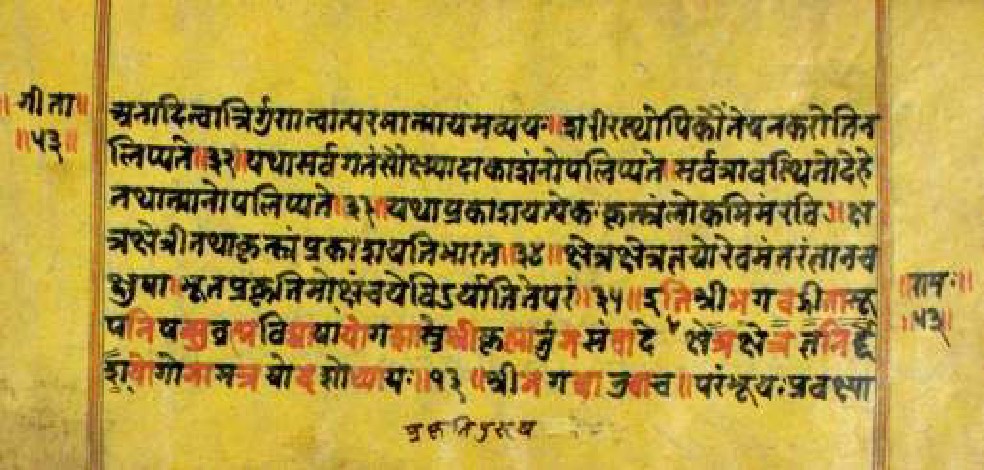 ॥गीता॥
॥५३॥
अनादित्वान्निर्गुणत्वात्परमात्मायमव्ययः॥शरीरस्थोपिकौंतेयनकरोतिन
लिप्यते॥३२॥यथासर्वगतंसौक्ष्म्यादाकाशंनोपलिप्यते॥सर्वत्रावस्थितोदेहे
तथात्मानोपलिप्यते॥३३॥यथाप्रकाशयत्येकःकृत्स्नंलोकमिमंरविः॥क्ष
त्रक्षेत्रीतथाकृत्स्नंप्रकाशयतिभारत॥३४॥क्षेत्रक्षेत्रज्ञयोरेवमंतरंज्ञानच
क्षुषा॥भूतप्रकृतिमोक्षंचयेविदुर्यांतितेपरं॥३५॥इतिश्रीभगवद्गीतासू
पनिषत्सुब्रह्मविद्यायांयोगशास्त्रेश्रीकृष्णार्जुनसंवादे क्षेत्रक्षेत्रज्ञनिर्द्दे
शयोगोनामत्रयोदशोध्यायः॥१३॥श्रीभगवानुवाच॥परंभूयःप्रवक्ष्या
॥रामः॥
॥५३॥
प्रकृतिपुरुष